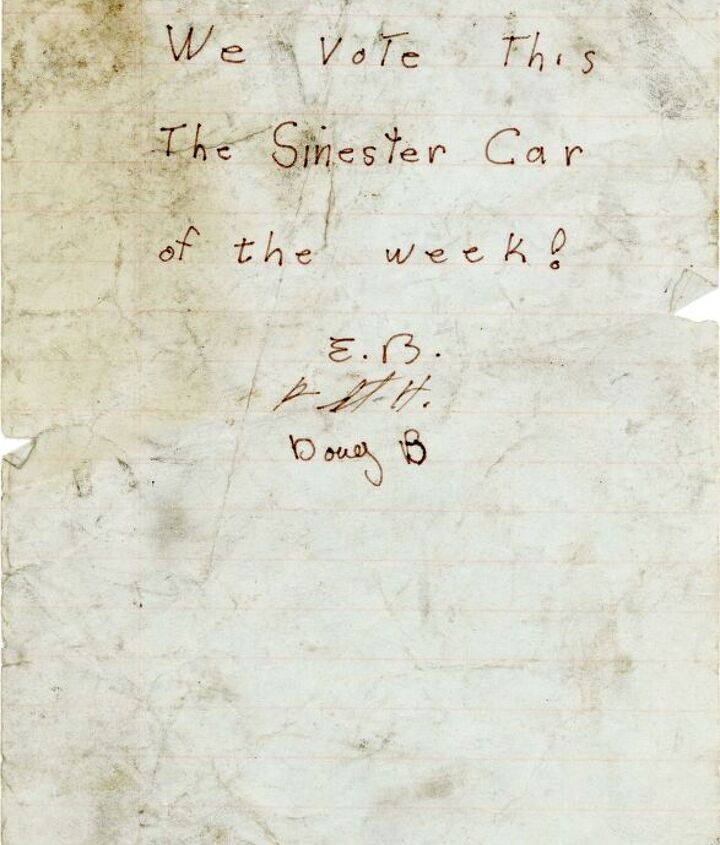 We Vote This
The Sinester Car
of the week!
E.B.
H.
Doug B